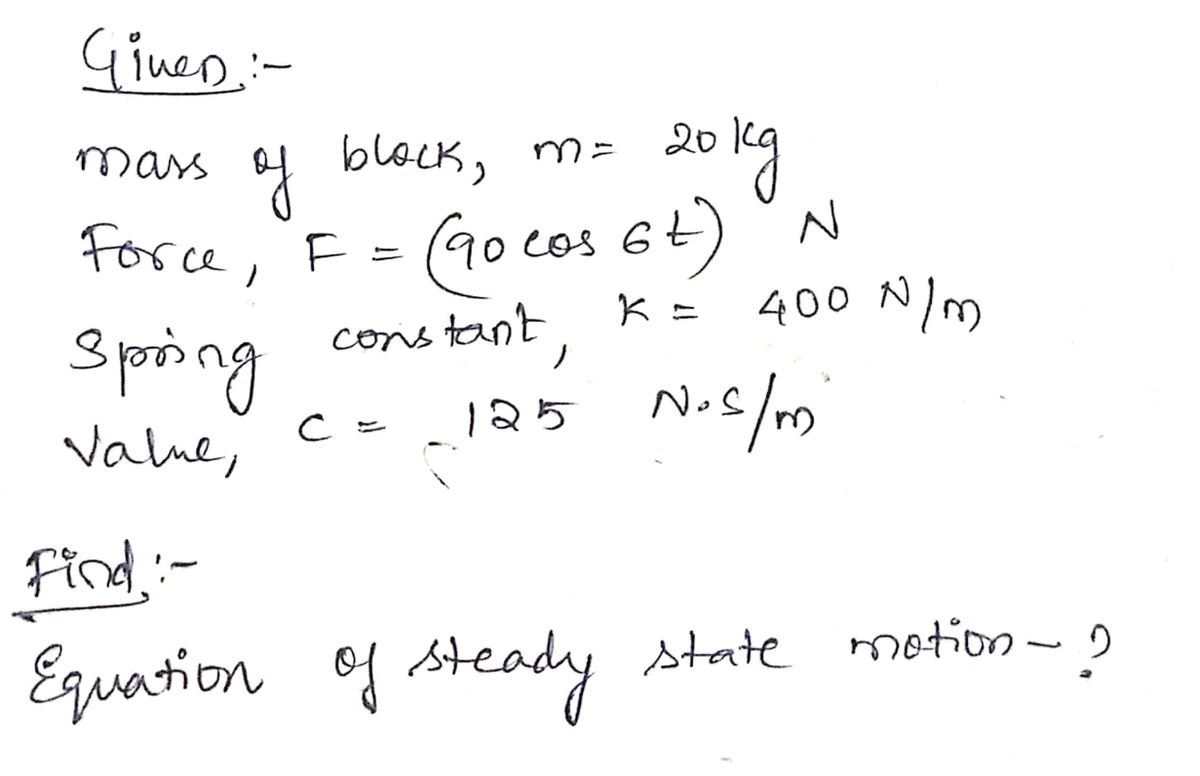 Given:-
mass of block, m = 20 kg
Force, F = (90 cos 6t) N
Spring constant, K = 400 N/m
Value, C = 125 N.S/m
Find:-
Equation of steady state motion - ?